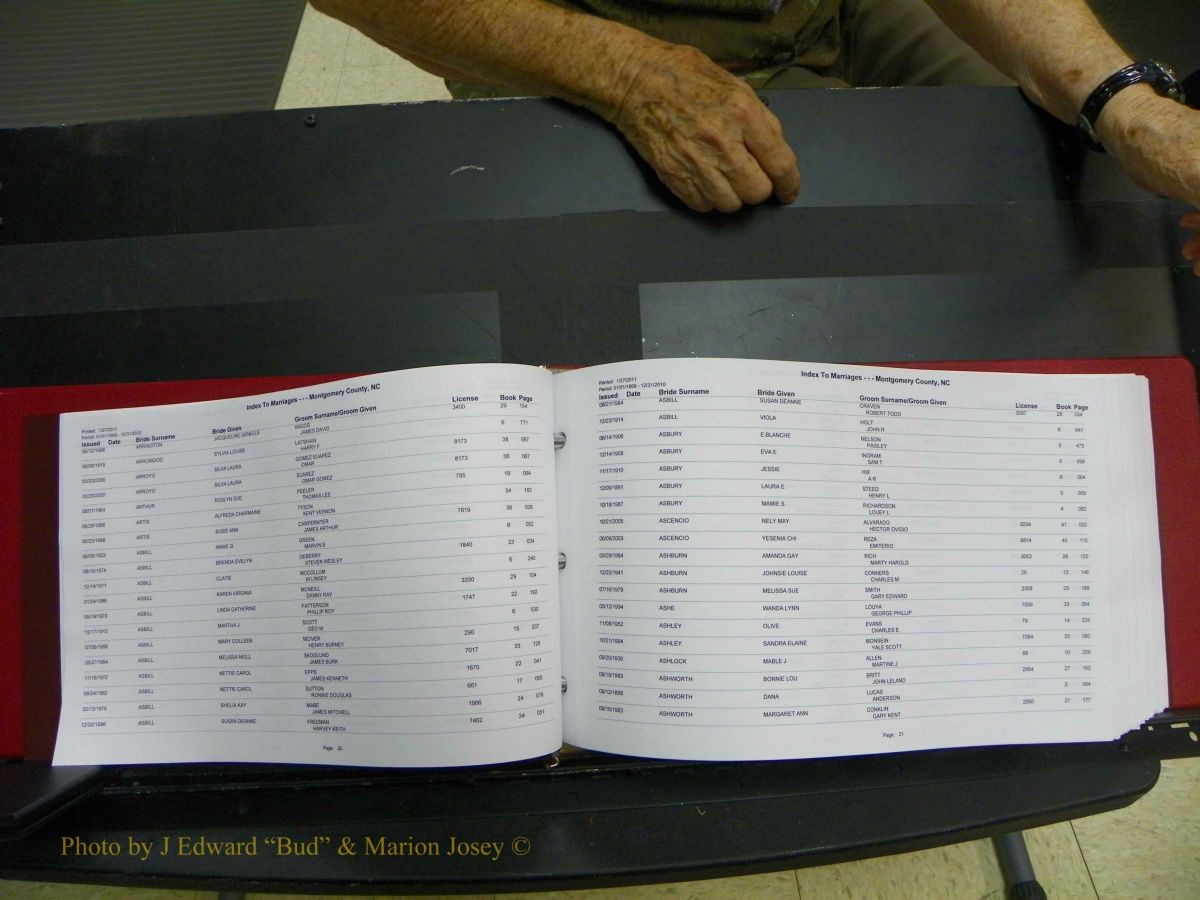 Index To Marriages - - - Montgomery County, NC
Printed 1/27/2011
Period: 01/01/1868 - 12/31/2010
Issued Date Bride Surname Bride Given Groom Surname/Groom Given License Book Page
ARRINGTON JACQUELINE DENELLE WIGGS 3400 29 154
JAMES DAVID
ARROWOOD SYLVIA LOUISE LATSHAW 6 771
HARRY F
03/20/2000 ARROYO SILVA LAURA GOMEZ SUAREZ 8173 38 067
OMAR
03/20/2000 ARROYO SILVA LAURA SUAREZ 8173 38 067
OMAR GOMEZ
ARTHUR ROSLYN SUE PEELER 795 18 064
THOMAS LEE
ARTIS ALFREDA CHARMANE TYSON 34 182
KENT VERNON
ARTIS SUSIE ANN CARPERNTER 7819 36 028
JAMES ARTHUR
ASBILL ANNIE G GREEN 8 052
MARVIN E
ASBILL BRENDA EVELYN DEBERRY 1840 23 034
STEVEN WESLEY
ASBILL CLATIE MCCOLLUM 6 240
W LINSEY
ASBILL KAREN VIRGINIA MCNEILL 3330 29 104
DANNY RAY
ASBILL LINDA CATHERINE PATTERSON 1747 22 192
PHILLIP ROY
ASBILL MARTHA J SCOTT 6 530
GEO W
ASBILL MARY COLLEEN MCIVER 290 15 207
HENRY BURNEY
ASBILL MELISSA NEILL SKOGLUND 7017 33 126
JAMES BURK
11/16/1972 ASBILL NETTIE CAROL EPPS 1670 22 041
JAMES KENNETH
ASBILL NETTIE CAROL SUTTON 661 17 060
RONNIE DOUGLAS
02/13/1976 ASBILL SHELIA KAY MABE 1986 24 076
JAMES MITCHELL
12/02/1996 ASBILL SUSAN DEANNE FREEMAN 7462 34 051
HARVEY KEITH
Page: 20
Index To Marriages - - - Montgomery County, NC
Printed 1/27/2011
Period: 01/01/1868 - 12/31/2010
Issued Date Bride Surname Bride Given Groom Surname/Groom Given License Book Page
08/21/1984 ASBILL SUSAN DEANNE CRAVEN 3097 28 034
ROBERT TODD
12/23/1914 ASBILL VIOLA HOLT 6 641
JOHN R
06/14/1906 ASBURY E BLANCHE NELSON 5 473
PAISLEY
12/14/1908 ASBURY EVA E INGRAM 5 898
SAM T
11/17/1910 ASBURY JESSIE HIX 6 084
A R
12/09/1891 ASBURY LAURA E STEED 3 369
HENRY L
10/18/1987 ASBURY MAMIE S RICHARDSON 4 082
LOUEY L
10/21/2005 ASCENCIO NELY MAY ALVARADO 9204 41 002
HECTOR OVIDIO
06/09/2003 ASCENCIO YESENIA CHI REZA 8814 40 115
EMITERIO
05/29/1984 ASHBURN AMANDA GAY RICH 3053 28 125
MARTY HAROLD
12/25/1941 ASHBURN JOHNSIE LOUISE CONNERS 25 12 146
CHARLES M
07/16/1979 ASHBURN MELISSA SUE SMITH 2358 25 188
GARY EDWARD
05/12/1994 ASHE WANDA LYNN LOUYA 7009 33 064
GEORGE PHILLIP
11/08/1952 ASHLEY OLIVE EVANS 79 14 228
CHARLES E
10/21/1994 ASHLEY SANDRA ELAINE MONSEIN 7084 33 080
YALE SCOTT
09/20/1936 ASHLOCK MABLE J ALLEN 88 10 209
MARTINE J
09/19/1983 ASHWORTH BONNIE LOU BRITT 2954 27 163
JOHN LELAND
09/12/1888 ASHWORTH DANA LUCAS 3 064
ANDERSON
09/16/1983 ASHWORTH MARGARET ANN CONKLIN 2950 27 177
GARY KENT
Page: 21
Photo by J Edward “Bud” & Marion Josey ©